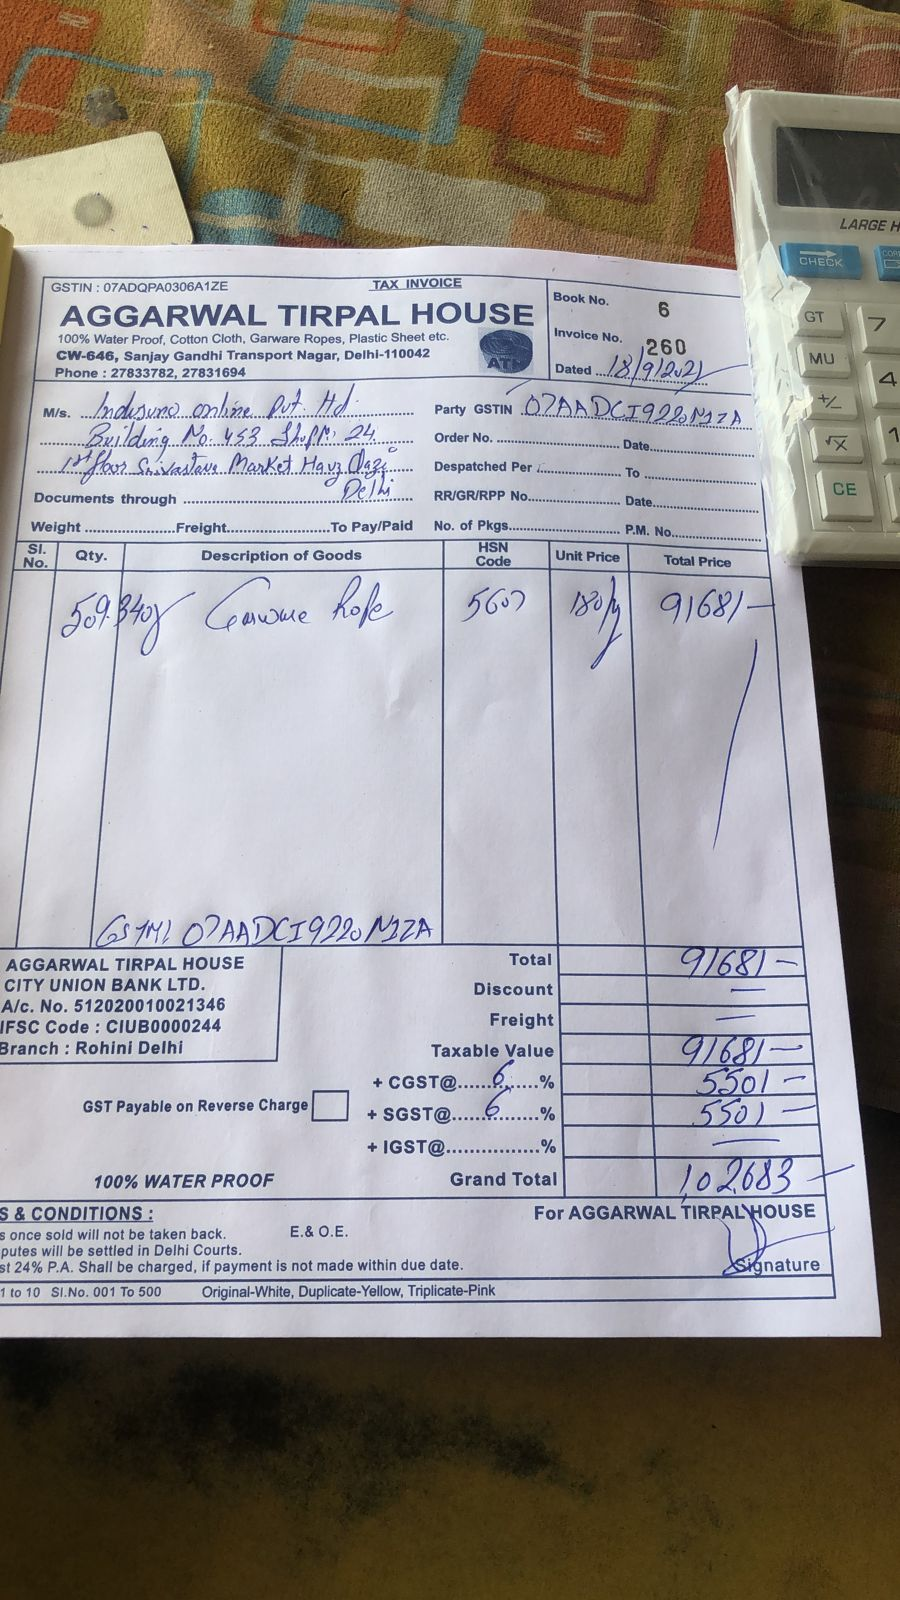 GSTIN : 07ADQPA0306A1ZE
TAX INVOICE
AGGARWAL TIRPAL HOUSE
100% Water Proof, Cotton Cloth, Garware Ropes, Plastic Sheet etc.
CW-646, Sanjay Gandhi Transport Nagar, Delhi-110042
Phone : 27833782, 27831694
ATH
Book No. 6
Invoice No. 260
Dated ...18/9/2021
M/s. online Pvt. Ltd.
Building No. 453 Shop No. 24
1st floor Srivastava Market Hauz Qazi
Delhi
Documents through
Weight ..............Freight........................To Pay/Paid
Party GSTIN 07AADCI9220N1ZA
Order No. ............................ Date..............
Despatched Per ................ To ................
RR/GR/RPP No.................... Date..............
No. of Pkgs.................... P.M. No.............
Sl. No. Qty. Description of Goods HSN Code Unit Price Total Price
509.340 Garware Rope 5607 180/ 91681-
GSTN: 07AADCI9220N1ZA
AGGARWAL TIRPAL HOUSE
CITY UNION BANK LTD.
A/c. No. 512020010021346
IFSC Code : CIUB0000244
Branch : Rohini Delhi
Total 91681-
Discount —
Freight —
Taxable Value 91681-
+ CGST@......6......% 5501-
+ SGST@......6......% 5501-
+ IGST@.................% —
Grand Total 102683-
GST Payable on Reverse Charge
100% WATER PROOF
S & CONDITIONS :
s once sold will not be taken back. E.& O.E.
putes will be settled in Delhi Courts.
st 24% P.A. Shall be charged, if payment is not made within due date.
For AGGARWAL TIRPAL HOUSE
Signature
1 to 10 Sl.No. 001 To 500 Original-White, Duplicate-Yellow, Triplicate-Pink
LARGE H
CHECK
GT
7
MU
4
+/-
√X
1
CE